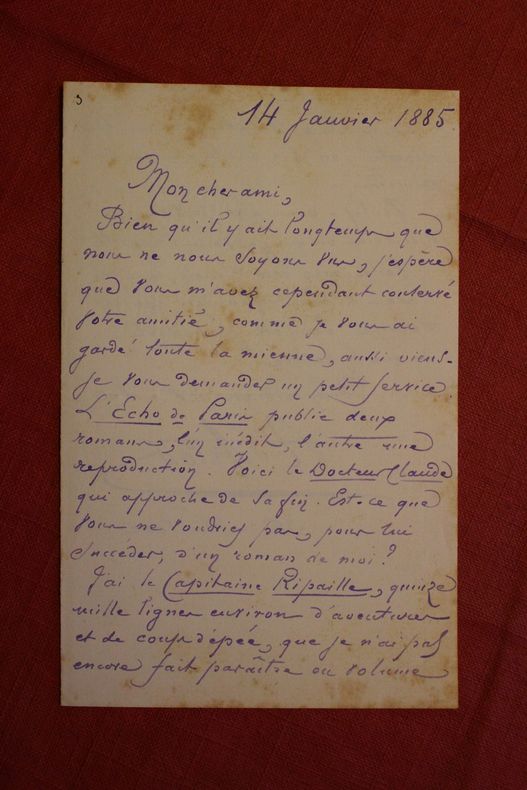 3
14 Janvier 1885
Mon cher ami,
Bien qu'il y ait longtemps que
nous ne nous soyons vus, j'espère
que vous m'avez cependant conservé
votre amitié, comme je vous ai
gardé toute la mienne, aussi viens-
je vous demander un petit service.
L'Echo de Paris publie deux
romans, l'un inédit, l'autre une
reproduction. Voici le Docteur Claude
qui approche de sa fin. Est-ce que
vous ne voudriez pas, pour lui
succéder, d'un roman de moi ?
J'ai le Capitaine Ripaille, quinze
mille lignes environ d'aventures
et de coups d'épée, que je n'ai pas
encore fait paraître en volume